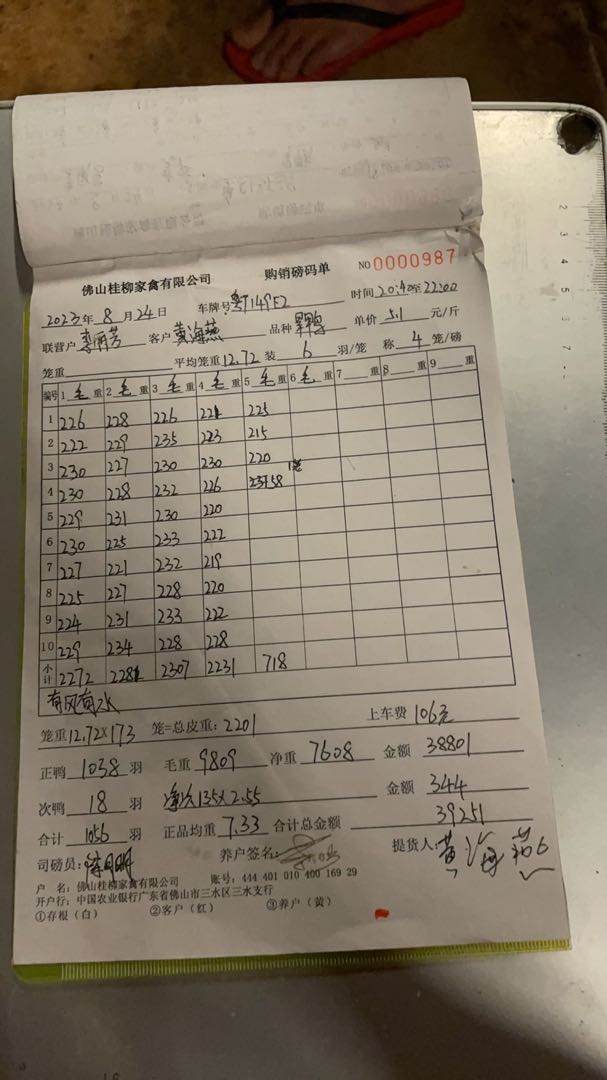 佛山桂柳家禽有限公司 购销磅码单 NO 0000987
2023年 8 月 24日 车牌号 粤J149F2 时间 20:40至22:00
联营户 李丽芳 客户 黄海燕 品种 单价 5.1 元/斤
笼重 平均笼重 12.72 装 6 羽/笼 称 4 笼/磅
编号 1 毛 重 2 毛 重 3 毛 重 4 毛 重 5 毛 重 6 毛 重 7 重 8 重 9 重
1 226 228 226 221 225
2 222 229 235 223 215
3 230 227 230 230 220
4 230 228 232 226 58 1笼
5 229 231 230 220
6 230 225 233 222
7 227 221 232 219
8 225 227 228 220
9 224 231 233 222
10 229 234 228 228
小计 2272 2281 2307 2231 718
有风有水
笼重 12.72×173 笼=总皮重: 2201 上车费 106元
正鸭 1038 羽 毛重 9809 净重 7608 金额 38801
次鸭 18 羽 净次135×2.55 金额 344
合计 1056 羽 正品均重 7.33 合计总金额 39251
司磅员: 养户签名: 提货人: 黄海燕
户 名: 佛山桂柳家禽有限公司 账号: 444 401 010 400 169 29
开户行: 中国农业银行广东省佛山市三水区三水支行
①存根（白） ②客户（红） ③养户（黄）